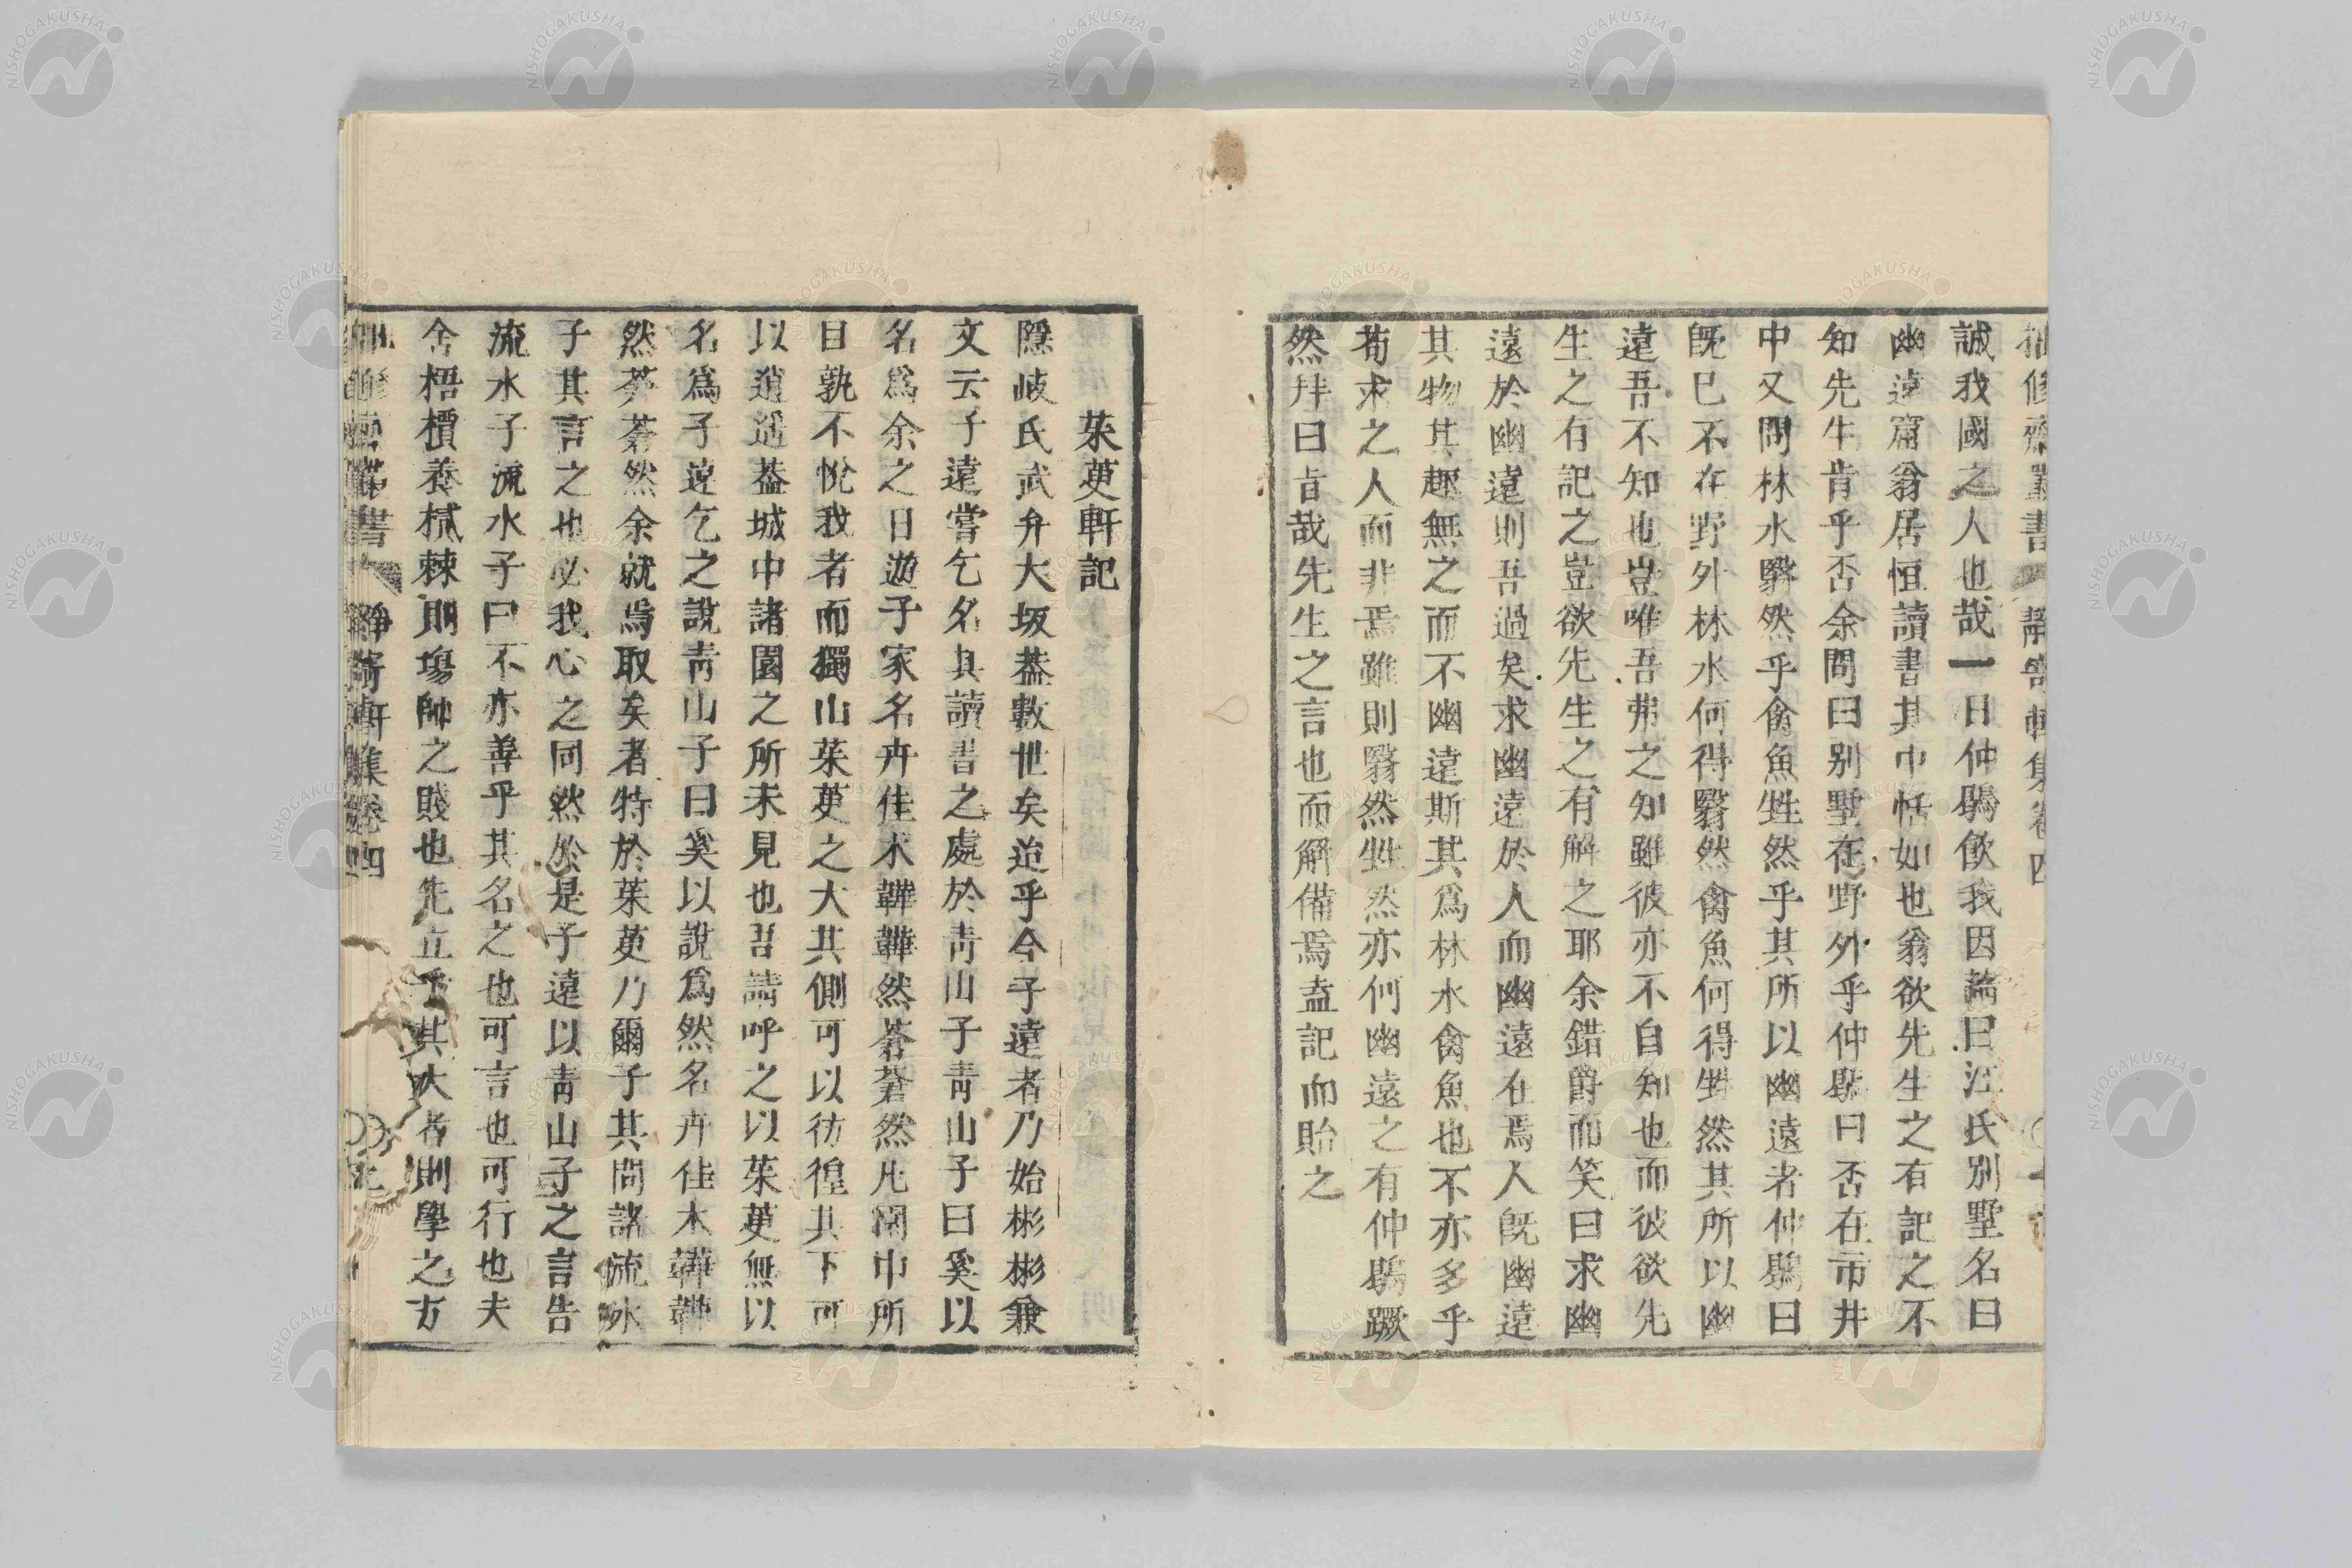 誠我國之人也哉一日仲鶡飲我因謂曰江氏別墅名曰
幽遠窩翁居恒讀書其中恬如也翁欲先生之有記之不
知先生肯乎否余問曰別墅在野外乎仲鶡曰否在市井
中又問林水翳然乎禽魚甡然乎其所以幽遠者仲鶡曰
既已不在野外林水何得翳然禽魚何得甡然其所以幽
遠吾不知也豈唯吾弗之知雖彼亦不自知也而彼欲先
生之有記之豈欲先生之有解之耶余錯爵而笑曰求幽
遠於幽遠則吾過矣求幽遠於人而幽遠在焉人既幽遠
其物其趣無之而不幽遠斯其為林水禽魚也不亦多乎
苟求之人而非焉雖則翳然甡然亦何幽遠之有仲鶡蹶
然拜曰旨哉先生之言也而解備焉盍記而貽之
茱萸軒記
隱岐氏武弁大坂葢數世矣迨乎今子遠者乃始彬彬兼
文云子遠嘗乞名其讀書之處於靑山子靑山子曰奚以
名爲余之日遊子家名卉佳木韡韡然蒼蒼然凡園中所
目孰不悅我者而獨山茱萸之大其側可以彷徨其下可
以逍遙葢城中諸園之所未見也吾請呼之以茱萸無以
名爲子遠乞之說靑山子曰奚以說爲然名卉佳木韡韡
然蒼蒼然余就焉取矣者特於茱萸乃爾子其問諸流水
子其言之也必我心之同然於是子遠以靑山子之言告
流水子流水子曰不亦善乎其名之也可言也可行也夫
舍梧檟養樲棘則塲師之賤也先立乎其大者則學之方
脩齋叢書 靜寄軒集卷四